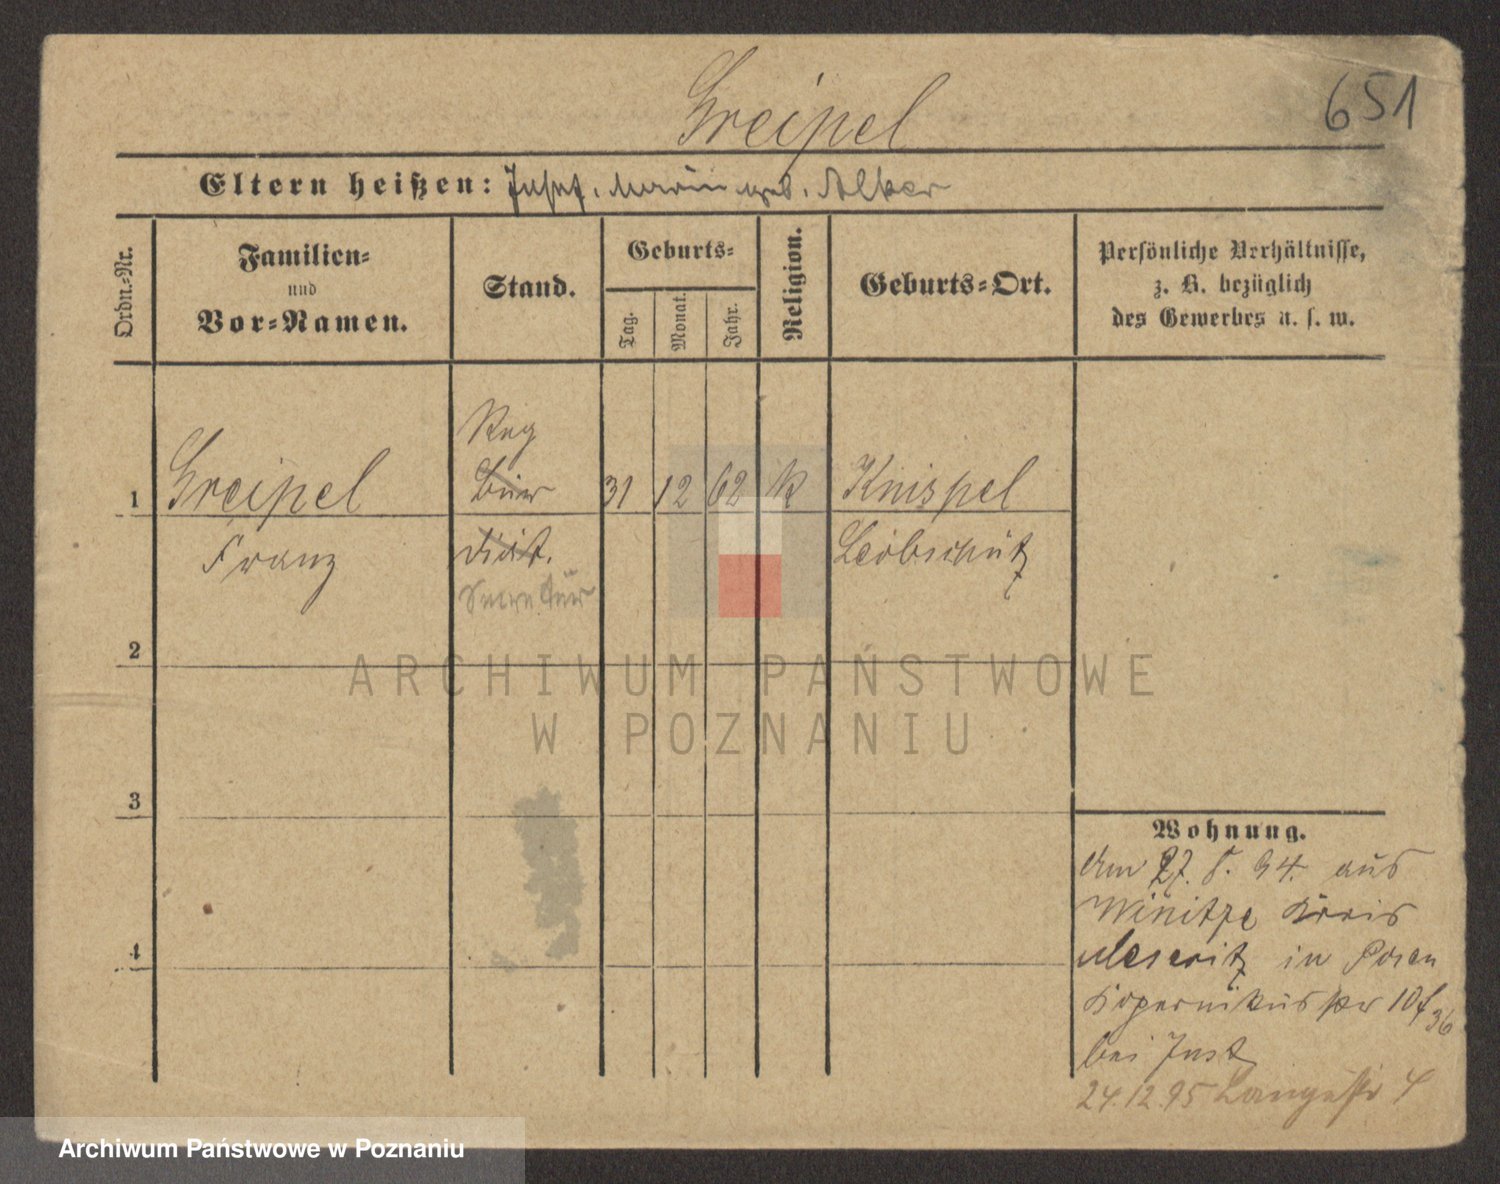 651
Greipel
Eltern heißen: Josef. Maria geb. Alker
Ordn.-Nr.
Familien- und Vor-Namen.
Stand.
Geburts-
Tag.
Monat.
Jahr.
Religion.
Geburts-Ort.
Persönliche Verhältnisse,
z. B. bezüglich
des Gewerbes u. s. w.
Reg
1 Greipel Büro 31 12 62 k Knispel
Franz Diät. Leobschütz
Secretär
2
3
4
Wohnung.
Am 27. 8. 94. aus
Kreis
Meseritz in Posen
Kopernikusstr 10
bei Just
24.12.95 Langestr 4
ARCHIWUM PAŃSTWOWE
W POZNANIU
Archiwum Państwowe w Poznaniu